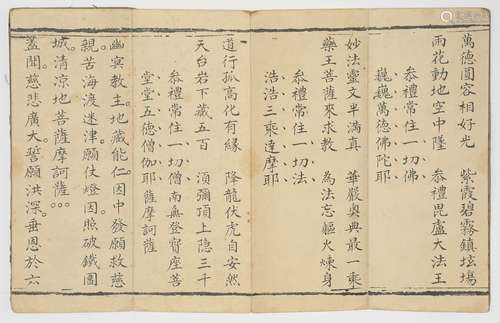 萬德圓容相好光　紫霞碧霧鎮坫場
雨花動地空中墜　叅禮毘盧大法王
叅禮常住一切佛
巍巍萬德佛陀耶
妙法靈文半滿真　華嚴奧典最一乘
藥王菩薩来求教　為法忘軀火煉身
叅禮常住一切法
浩浩三乘達摩耶
道行孤高化有緣　降龍伏虎自安然
天台岩下藏五百　湏彌頂上隱三千
叅禮常住一切僧南無登寳座菩
堂堂五德僧伽耶　薩摩訶薩
幽冥教主。地藏能仁。因中發願救慈
親苦海渡迷津。願仗燈因。照破鐵圍
城。清凉地菩薩摩訶薩
蓋聞。慈悲廣大。誓願洪深。垂恩於六